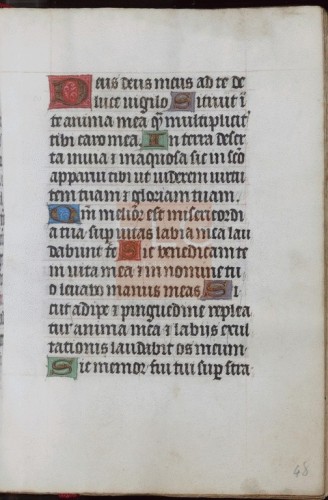 Deus deus meus ad te de
luce vigilo Sitiuit ī
te anima mea q̄ multipliciť
tibi caro mea. In terra deser
ta inuia ⁊ inaquosa sic in sc̄o
apparui tibi ut viderem virtu
tem tuam ⁊ gloriam tuam.
Qm̄ melior est misericordi
a tua sup vitas labia mea lau
dabunt te Sic benedicam te
in vita mea ⁊ in nomine tu
o leuabo manus meas Si
cut adipe ⁊ pinguedine replea
tur anima mea ⁊ labijs exul
tationis laudabit os meum
Sic memor fui tui sup stra
48